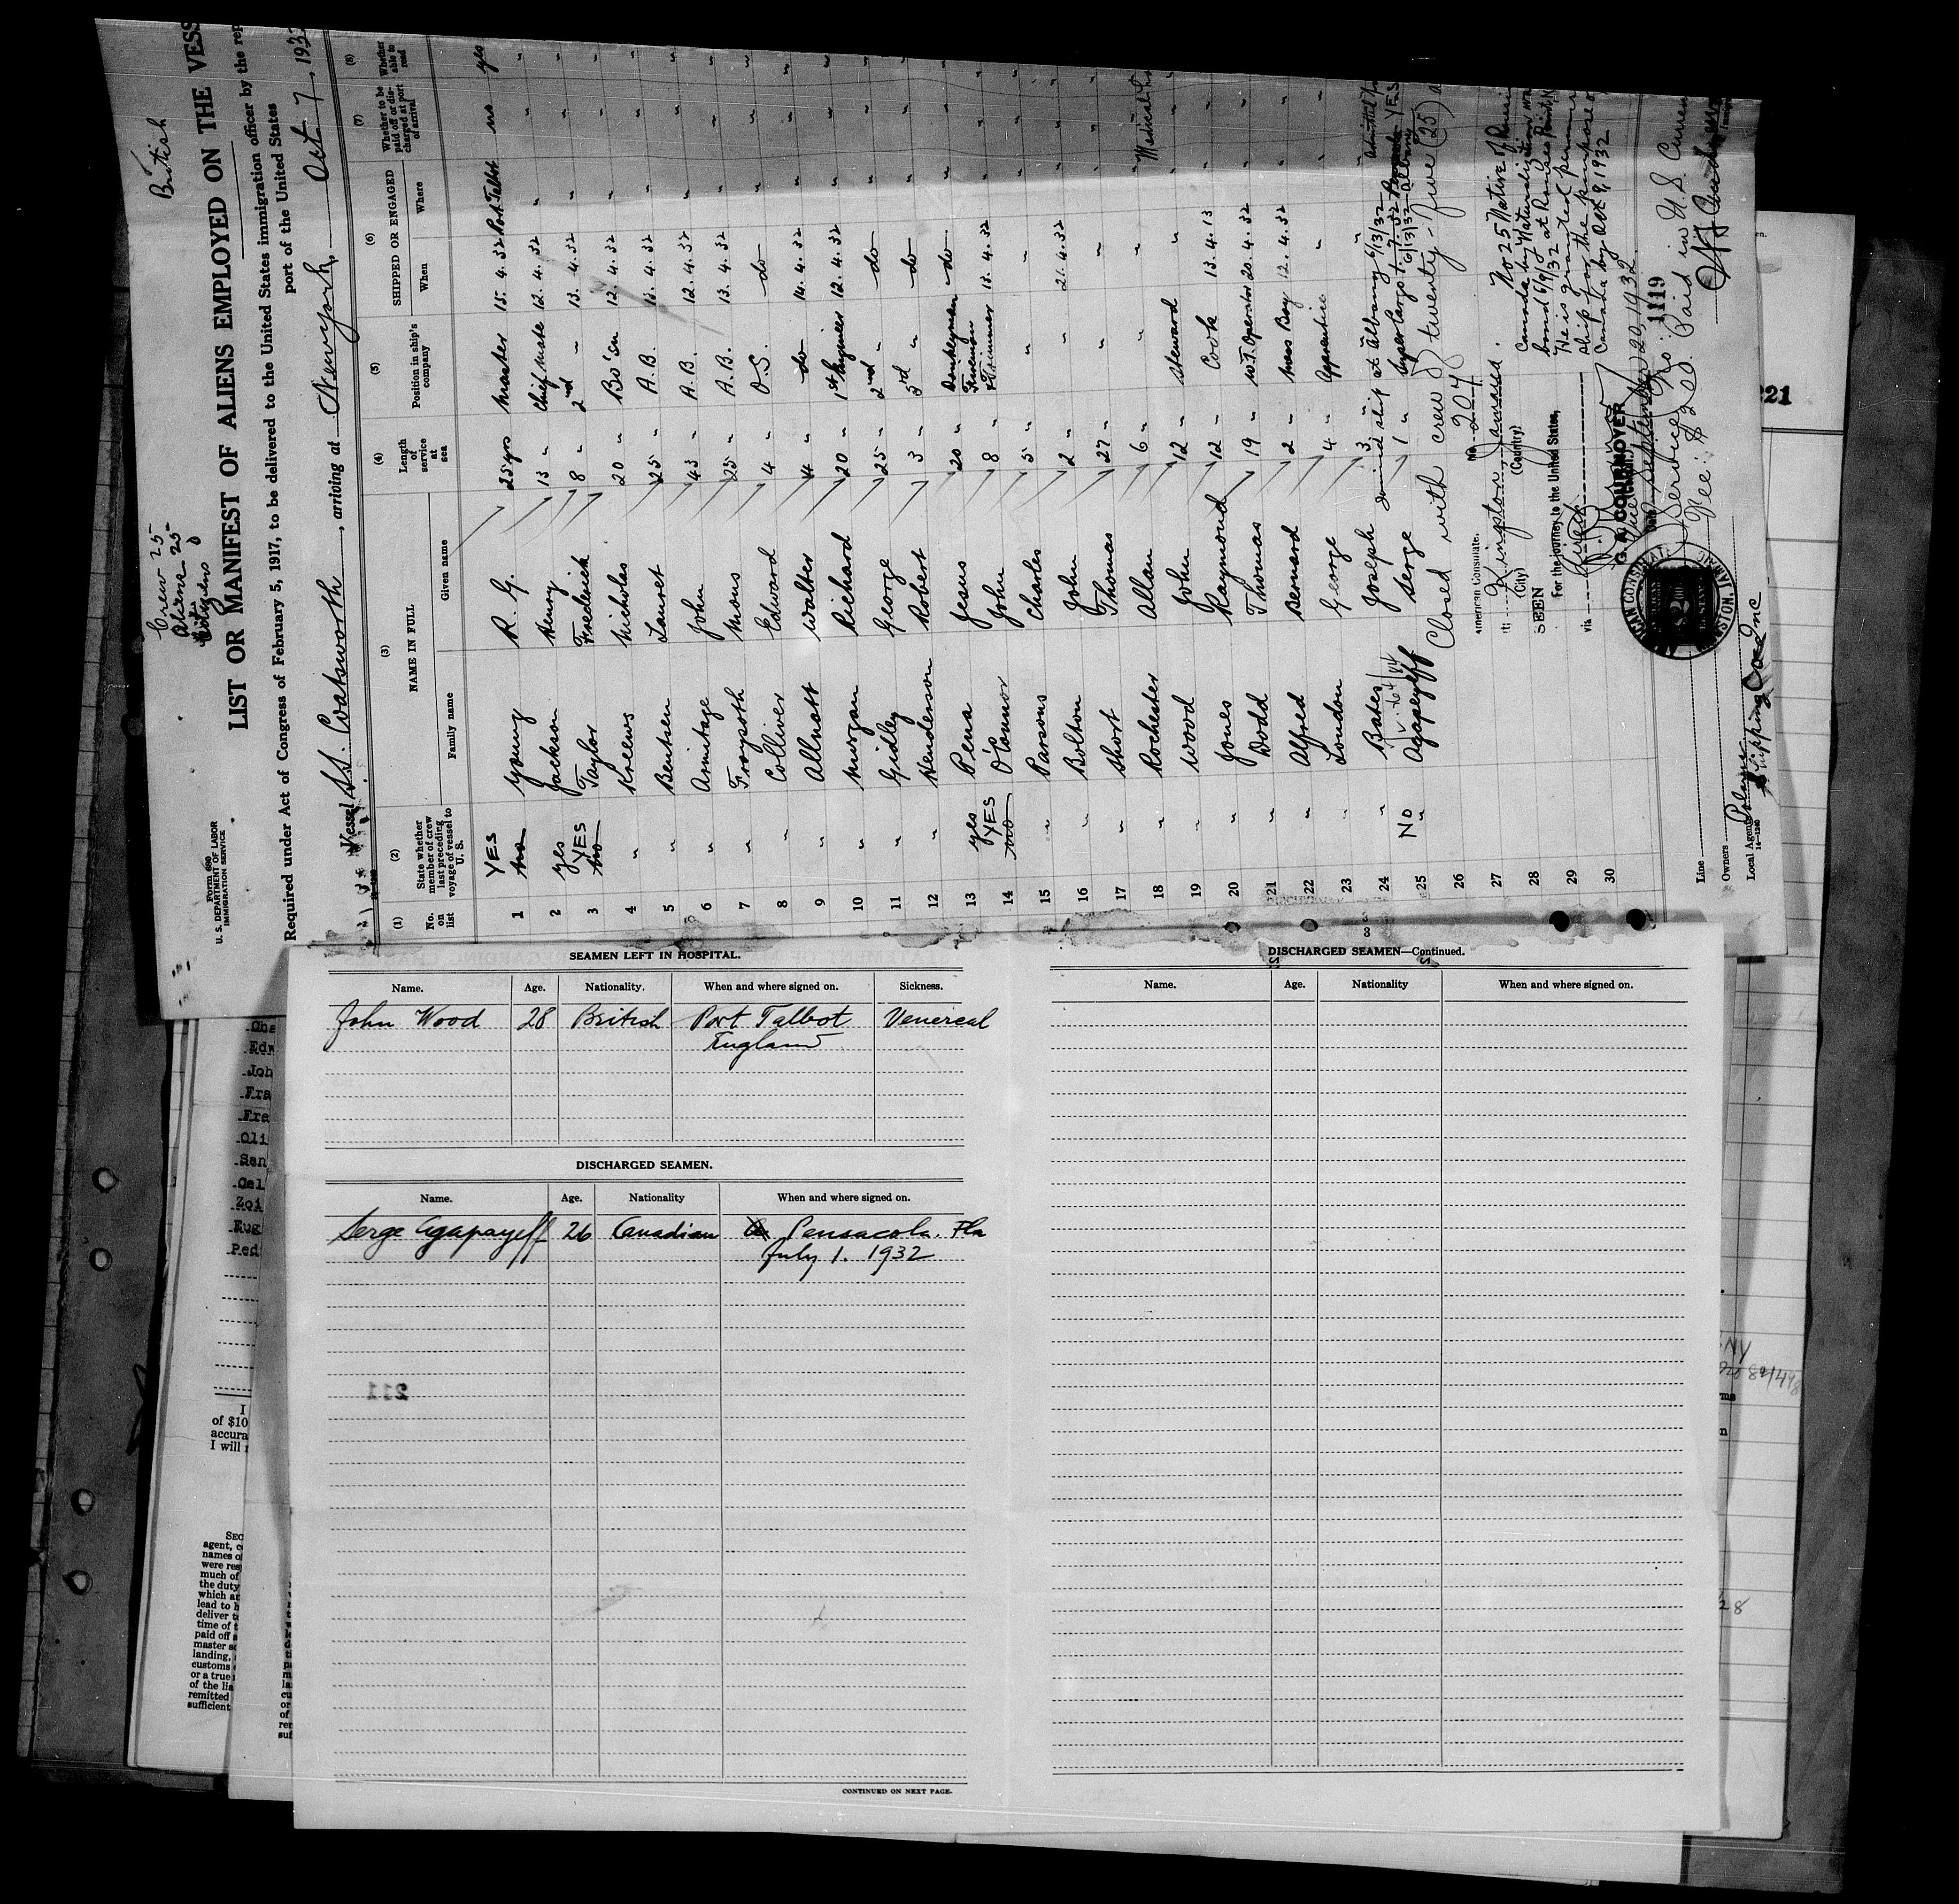 British
Crew 25
Aliens 25
Citizens 0
Form 680
U. S. DEPARTMENT OF LABOR
IMMIGRATION SERVICE
LIST OR MANIFEST OF ALIENS EMPLOYED ON THE VESS
Required under Act of Congress of February 5, 1917, to be delivered to the United States immigration officer by the rep
port of the United States
Vessel SS. Coatsworth, arriving at Newyork, Oct 7, 193
(1) (2) (3) (4) (5) (6) (7) (8)
No. on list
State whether member of crew last preceding voyage of vessel to U. S.
NAME IN FULL
Family name Given name
Length of service at sea
Position in ship's company
SHIPPED OR ENGAGED
When Where
Whether to be paid off or discharged at port of arrival
Whether able to read
1 YES no Young R. G. 25 yrs Master 15. 4. 32 Port Talbot no yes
2 yes Jackson Henry 13 " Chief Mate 12. 4. 32 " " "
3 YES no Taylor Frederick 8 " 2nd " 13. 4. 32 " " "
4 " Kreews Nicholas 20 " Bo'sn 12. 4. 32 " " "
5 " Bentsen Lauret 25 " A. B. 13. 4. 32 " " "
6 " Armitage John 43 " A. B. 12. 4. 32 " " "
7 " Mons 25 " A. B. 13. 4. 32 " " "
8 " Colliver Edward 4 " O. S. do " " "
9 " Allnatt Walter 4 " do 14. 4. 32 " " "
10 " Morgan Richard 20 " 1st Engineer 12. 4. 32 " " "
11 " Gidley George 25 " 2nd " do " " "
12 " Henderson Robert 3 " 3rd " do " " "
13 yes Pena Jesus 20 " Donkeyman do " " "
14 YES no O'Connor John 8 " Fireman & Trimmer 13. 4. 32 " " "
15 " Parsons Charles 5 " " " " " "
16 " Bolton John 2 " " 21. 4. 32 " " "
17 " Short Thomas 27 " " " " " "
18 " Rochester Allan 6 " " " " Medical
19 " Wood John 12 " Steward " " " "
20 " Jones Raymond 12 " Cook 13. 4. 13 " " "
21 " Dodd Thomas 19 " W.T. Operator 20. 4. 32 " " "
22 " Alfred Bernard 2 " Mess Boy 12. 4. 32 " " "
23 " London George 4 " Apprentice " " " "
24 " Bates Joseph 3 " " " "
Joined ship at Albany 6/13/32
25 NO " Agapeyeff Serge 1 " Super Cargo 1. 7. 32 Pensacola YES
6/13/32 Albany
26 Closed with crew of twenty-five (25) a
27
28
29
30
No 207
American Consulate.
at Kingston, Jamaica.
(City) (Country)
SEEN
For the journey to the United States,
via Direct
G. A. COURNOYER
Date September 20, 1932.
Service No: 1119
Fee: $2.00. Paid in U. S. Curren
AMERICAN CONSULATE
KINGSTON, JAMAICA
No 25 Native of
Canada by Naturalization
bond 6/9/32 at Rouses Point, N
He is granted
ship for the purpose
Canada by Oct 9, 1932
Line
Owners
Local Agents Shipping Co Inc
14—1240
SEAMEN LEFT IN HOSPITAL.
Name. Age. Nationality. When and where signed on. Sickness.
John Wood 28 British Port Talbot Venereal
England
DISCHARGED SEAMEN.
Name. Age. Nationality When and where signed on.
Serge Agapayeff 26 Canadian Pensacola. Fla
July 1. 1932
211
CONTINUED ON NEXT PAGE.
3
DISCHARGED SEAMEN—Continued.
Name. Age. Nationality When and where signed on.
Cha
Edw
Joh
Fra
Fre
Oli
San
Cal
Zoi
Eug
Ped
I
of $10
accura
I will
SEC
agent, c
names of
were res
much of
the duty
which ar
lead to h
deliver t
time of t
paid off
master s
landing,
customs
or a true
of the lis
remitted
sufficient
221
NY
28